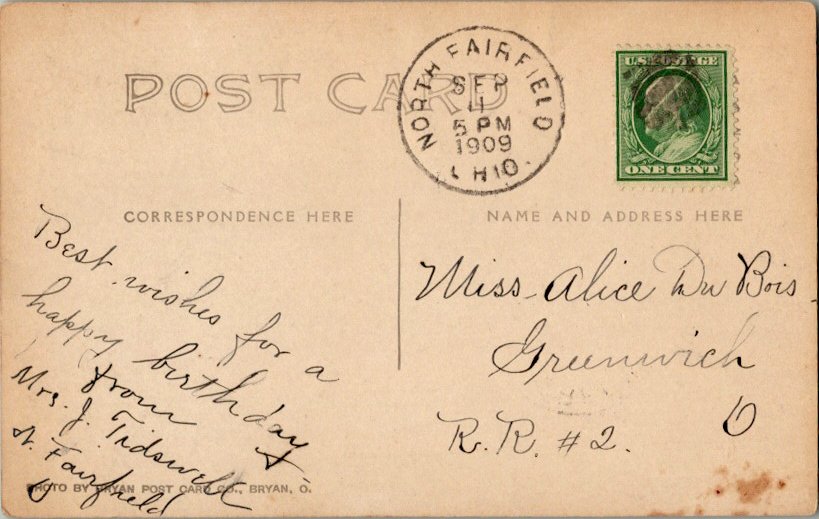 POST CARD
NORTH FAIRFIELD
SEP
5 PM
1909
OHIO.
U.S. POSTAGE
ONE CENT
CORRESPONDENCE HERE
NAME AND ADDRESS HERE
Best wishes for a
happy birthday
from
Mrs. J. Tidswell
N. Fairfield
O
Miss Alice Du Bois
Greenwich
O
R. R. #2.
PHOTO BY BRYAN POST CARD CO., BRYAN, O.